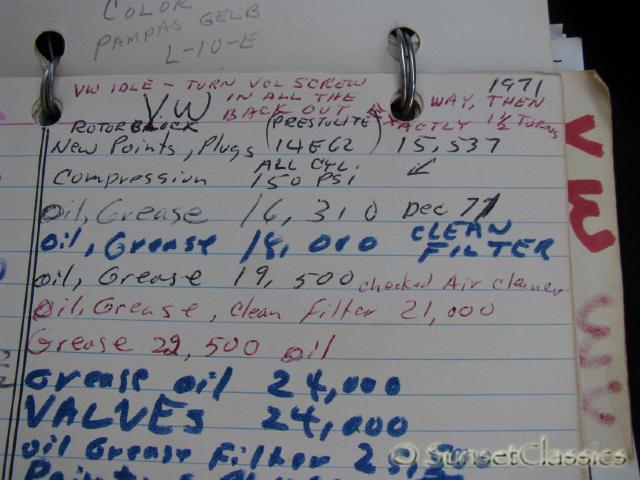 COLOR
PAMPAS GELB
L-10-E
VW IDLE - TURN VOL SCREW
IN ALL THE WAY, THEN
BACK OUT EXACTLY 1½ TURNS
1971
VW
ROTOR BLACK (PRESTOLITE)
New Points, Plugs 14E62 15,537
Compression ALL CYL. 150 PSI
oil, Grease 16,310 Dec 71
oil, Grease 18,000 CLEAN FILTER
oil, Grease 19,500 checked Air cleaner
oil, Grease, clean filter 21,000
Grease 22,500 oil
Grease oil 24,000
VALVES 24,000
oil Grease Filter
VW
© SunsetClassics